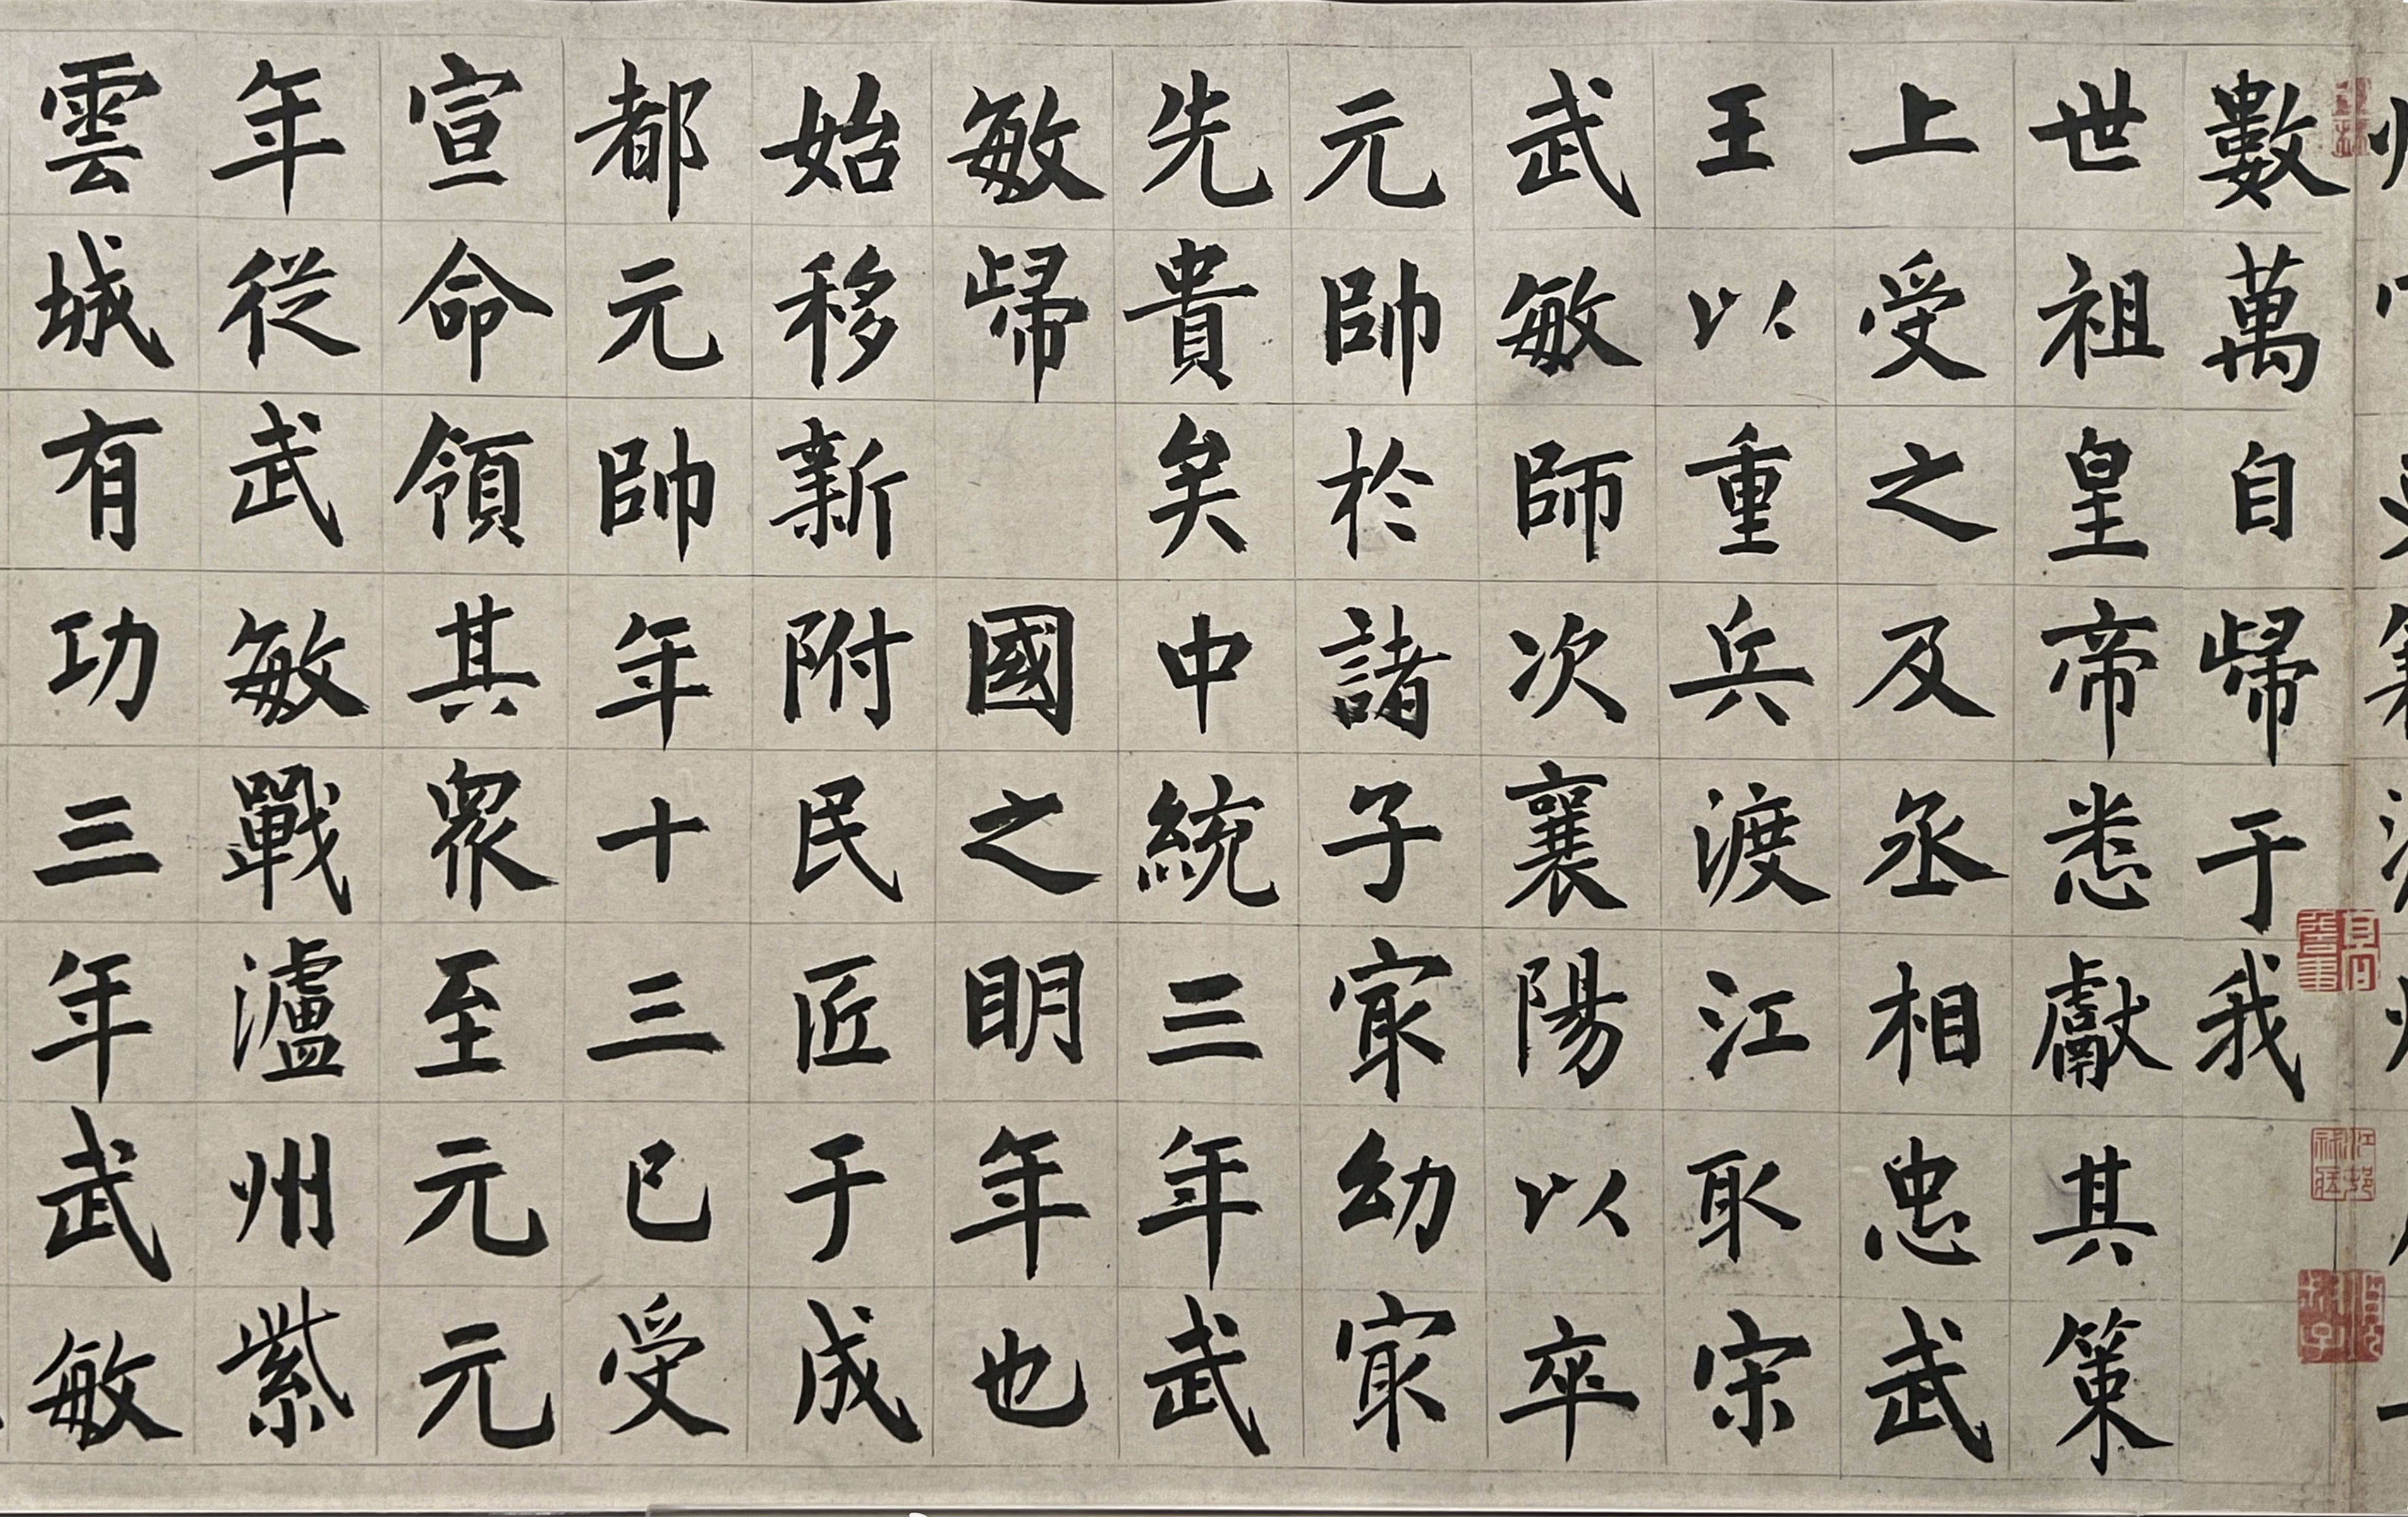 數萬自歸于我
世祖皇帝悉獻其策
上受之及丞相忠武
王以重兵渡江取宋
武敏師次襄陽以卒
元帥於諸子冣幼冣
先貴矣中統三年武
敏歸 國之明年也
始移新附民匠于成
都元帥年十三已受
宣命領其眾至元元
年從武敏戰瀘州紫
雲城有功三年武敏